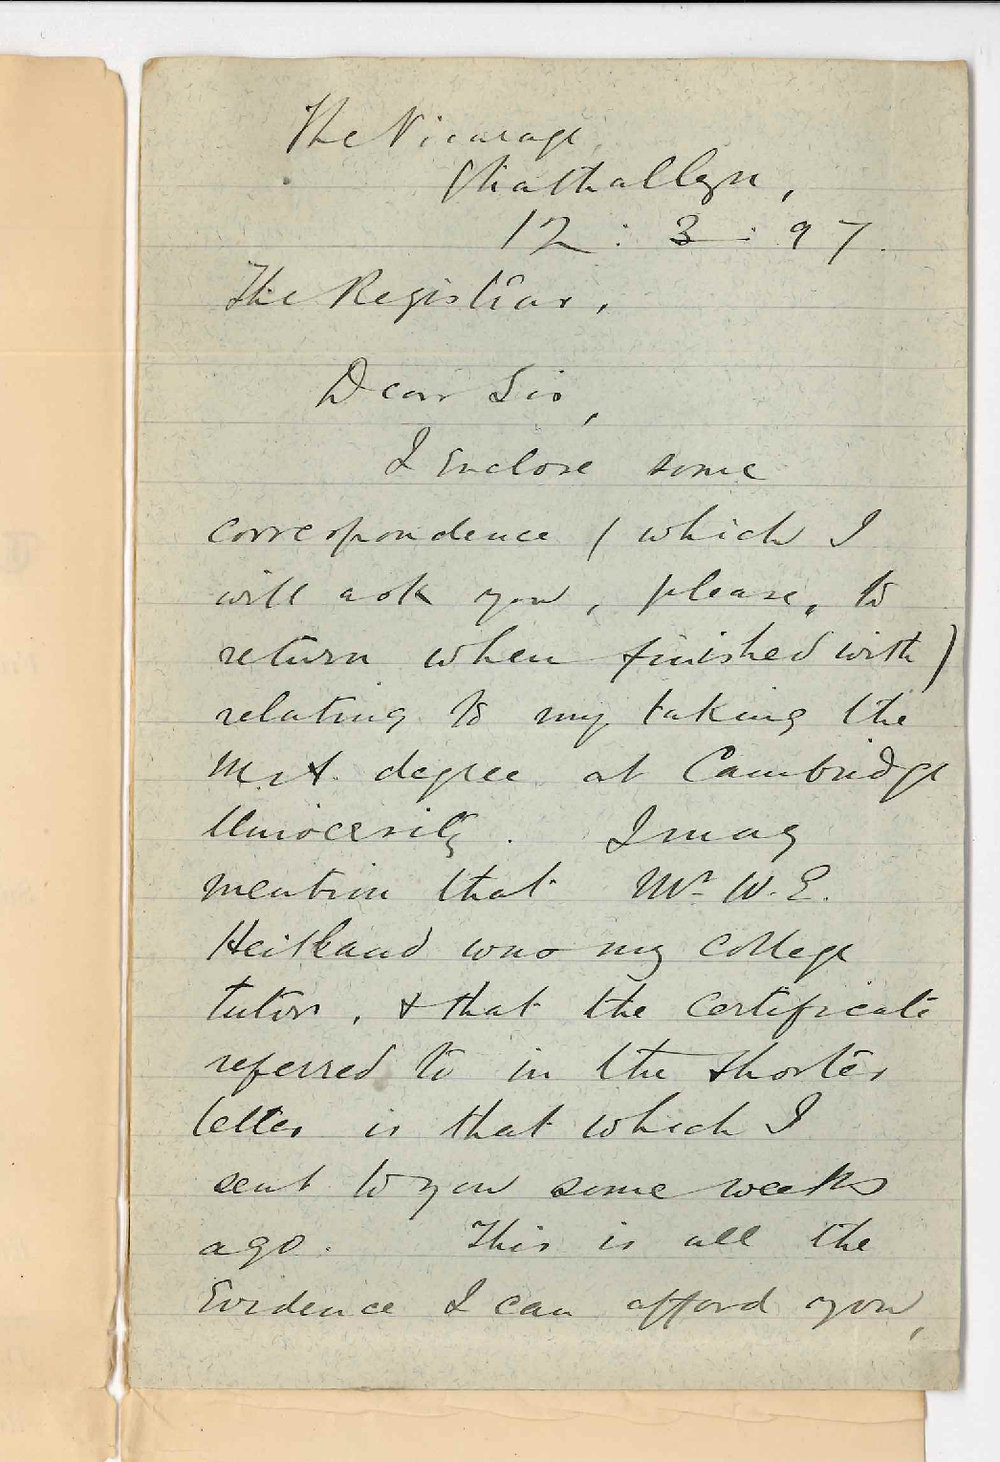 The Vicarage,
Strathallyn,
12 : 3 : 97.
The Registrar,
Dear Sir,
I Enclose some
correspondence ( which I
will ask you, please, to
return when finished with )
relating to my taking the
M.A. degree at Cambridge
University. I may
mention that Mr. W. E.
Heitland was my College
tutor, & that the Certificate
referred to in the shorter
letter is that which I
sent to you some weeks
ago. This is all the
Evidence I can afford you,